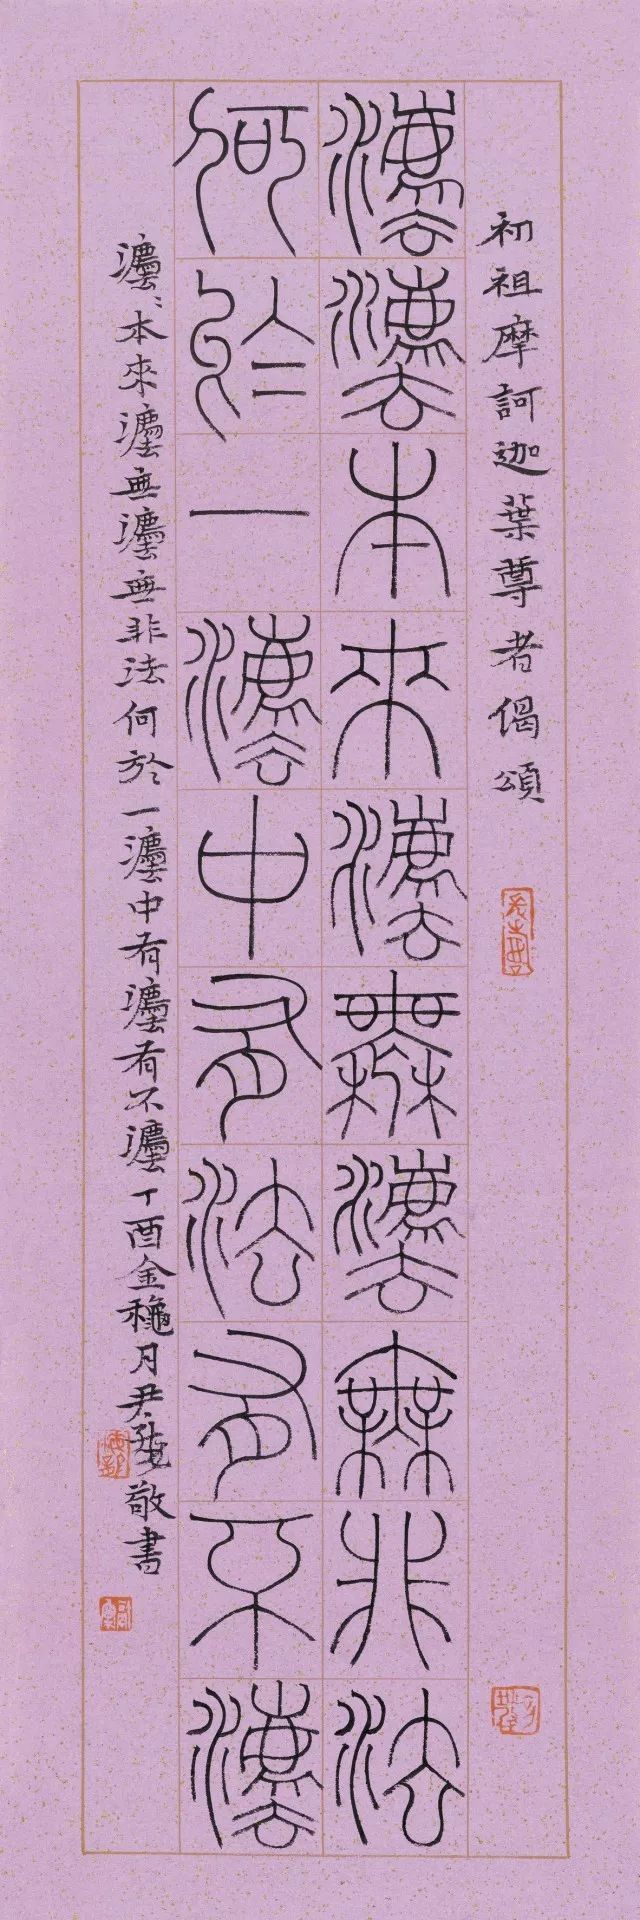 初祖摩訶迦葉尊者偈頌
灋灋本來灋無灋無非法
何於一灋中有法有不灋
灋〻本來灋無灋無非法何於一灋中有灋有不灋丁酉金穐月尹敬書